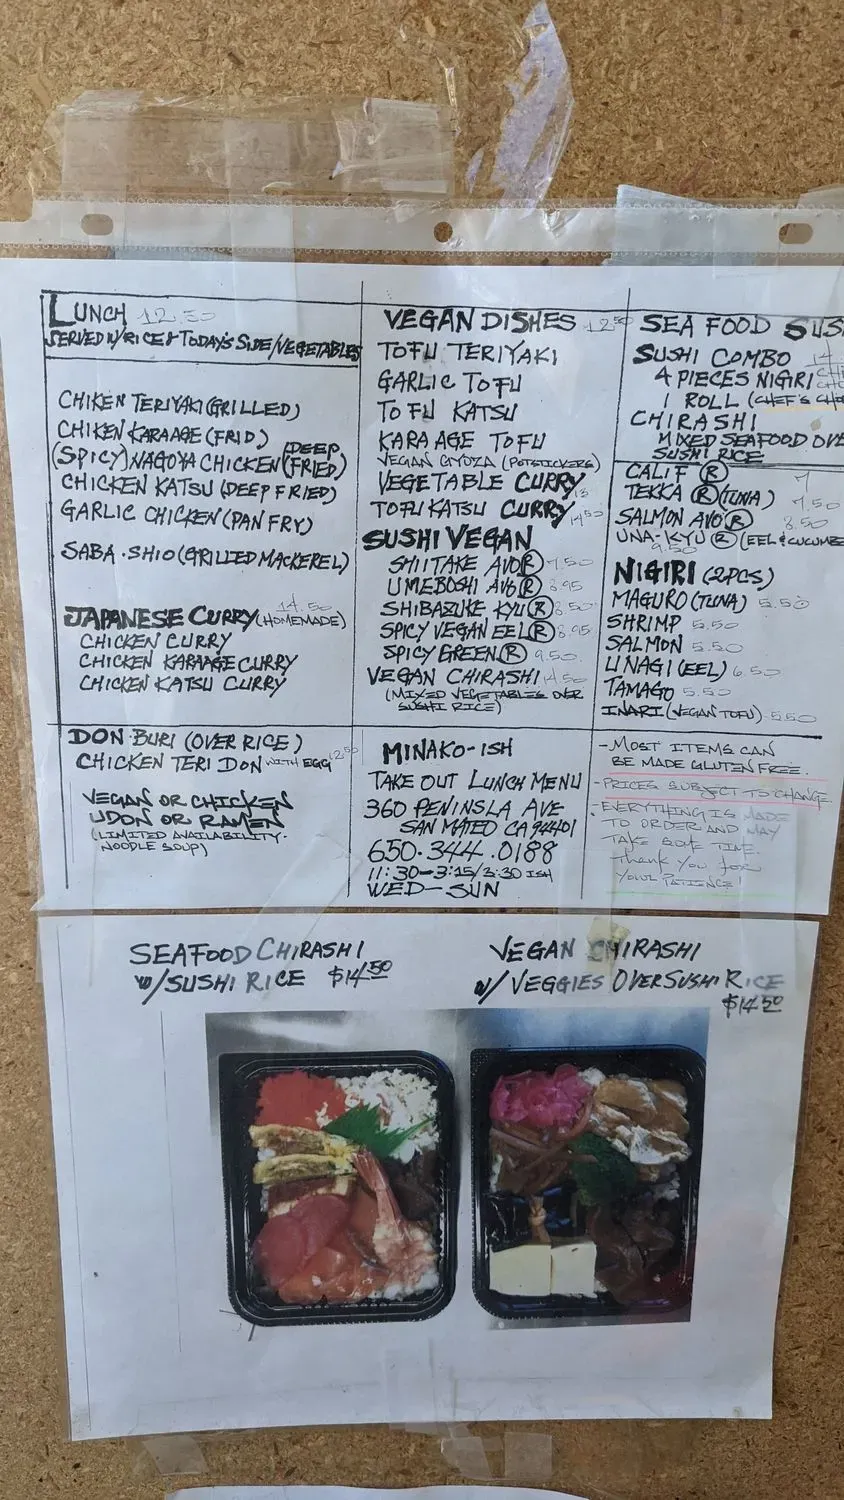 LUNCH 12.50
SERVED W/RICE & TODAY'S SIDE/VEGETABLES
CHIKEN TERIYAKI (GRILLED)
CHIKEN KARAAGE (FRID)
(SPICY) NAGOYA CHICKEN (DEEP FRIED)
CHICKEN KATSU (DEEP FRIED)
GARLIC CHICKEN (PAN FRY)
SABA-SHIO (GRILLED MACKEREL)
JAPANESE CURRY (HOMEMADE) 14.50
CHICKEN CURRY
CHICKEN KARAAGE CURRY
CHICKEN KATSU CURRY
DON-BURI (OVER RICE)
CHICKEN TERI DON WITH EGG 12.50
VEGAN OR CHICKEN
UDON OR RAMEN
(LIMITED AVAILABILITY-
NOODLE SOUP)
VEGAN DISHES 12.50
TOFU TERIYAKI
GARLIC TOFU
TOFU KATSU
KARA AGE TOFU
VEGAN GYOZA (POTSTICKERS)
VEGETABLE CURRY 13
TOFU KATSU CURRY 14.50
SUSHI VEGAN
SHIITAKE AVO Ⓡ 7.50
UMEBOSHI AVO Ⓡ 8.95
SHIBAZUKE KYU Ⓡ 8.50
SPICY VEGAN EEL Ⓡ 8.95
SPICY GREEN Ⓡ 9.50
VEGAN CHIRASHI 14.50
(MIXED VEGETABLES OVER
SUSHI RICE)
MINAKO-ISH
TAKE OUT LUNCH MENU
360 PENINSLA AVE
SAN MATEO CA 94401
650.344.0188
11:30-3:15/3:30 ISH
WED-SUN
SEA FOOD SUS
SUSHI COMBO 14
4 PIECES NIGIRI
1 ROLL (CHEF'S CHO
CHIRASHI
MIXED SEAFOOD OVE
SUSHI RICE
CALIF Ⓡ 7
TEKKA Ⓡ (TUNA) 7.50
SALMON AVO Ⓡ 8.50
UNA-KYU Ⓡ (EEL & CUCUMBE
9.50
NIGIRI (2PCS)
MAGURO (TUNA) 5.50
SHRIMP 5.50
SALMON 5.50
UNAGI (EEL) 6.50
TAMAGO 5.50
INARI (VEGAN TOFU) 5.50
- MOST ITEMS CAN
BE MADE GLUTEN FREE.
- PRICES SUBJECT TO CHANGE.
- EVERYTHING IS MADE
TO ORDER AND MAY
TAKE SOME TIME.
Thank You for
YOUR PATIENCE!
SEAFOOD CHIRASHI
W/SUSHI RICE $14.50
VEGAN CHIRASHI
W/ VEGGIES OVER SUSHI RICE
$14.50